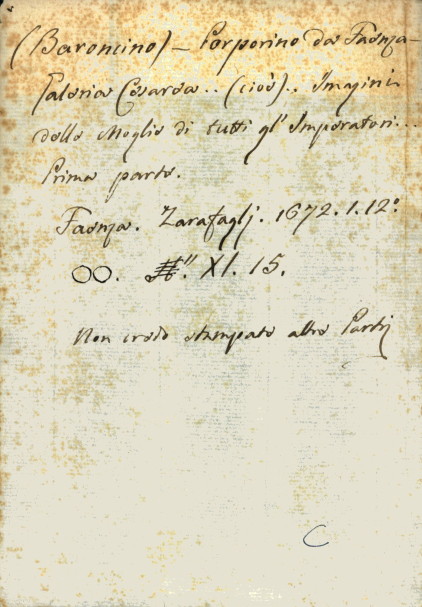 (Baroncino) – Porporino da Faenza –
Galeria Cesarea .. (cioè) .. Imagini
delle Moglie di tutti gl' Imperatori ...
Prima parte.
Faenza. Zarafaglj. 1672. 1. 12º
OO. #". XI. 15.
Non credo stampate altre Partj
C